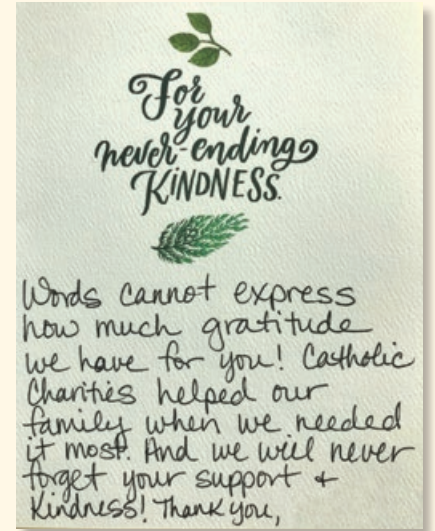 For
your
never-ending
KINDNESS.
Words cannot express
how much gratitude
we have for you! Catholic
Charities helped our
family when we needed
it most. And we will never
forget your support +
Kindness! Thank you,